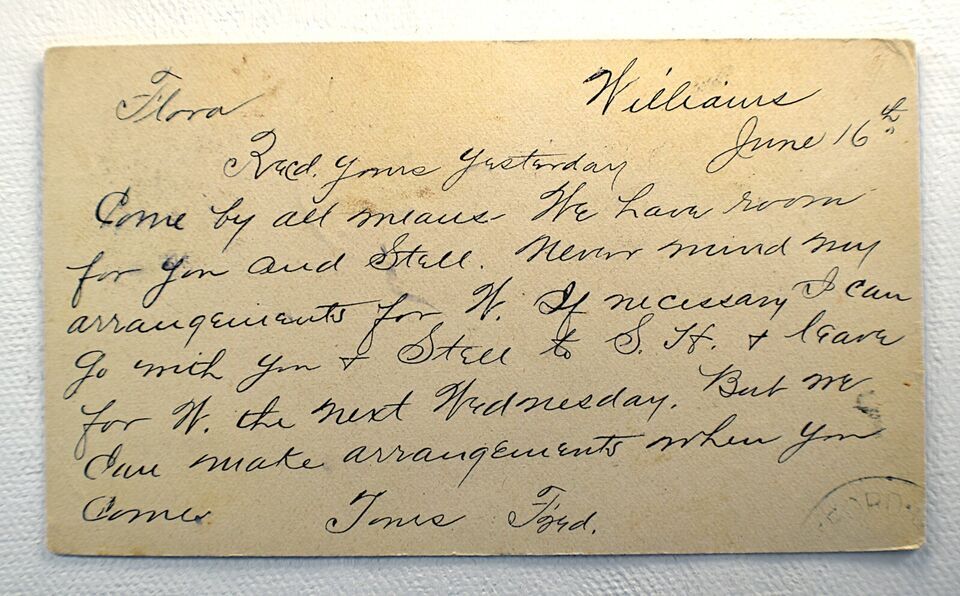 Flora
Williams
June 16th
Recd. yours yesterday
Come by all means- We have room
for you and Stell. Never mind my
arrangements for W. If necessary I can
go with you & Stell to S. H. & leave
for W. the next Wednesday. But we
can make arrangements when you
come. Yours Fred.